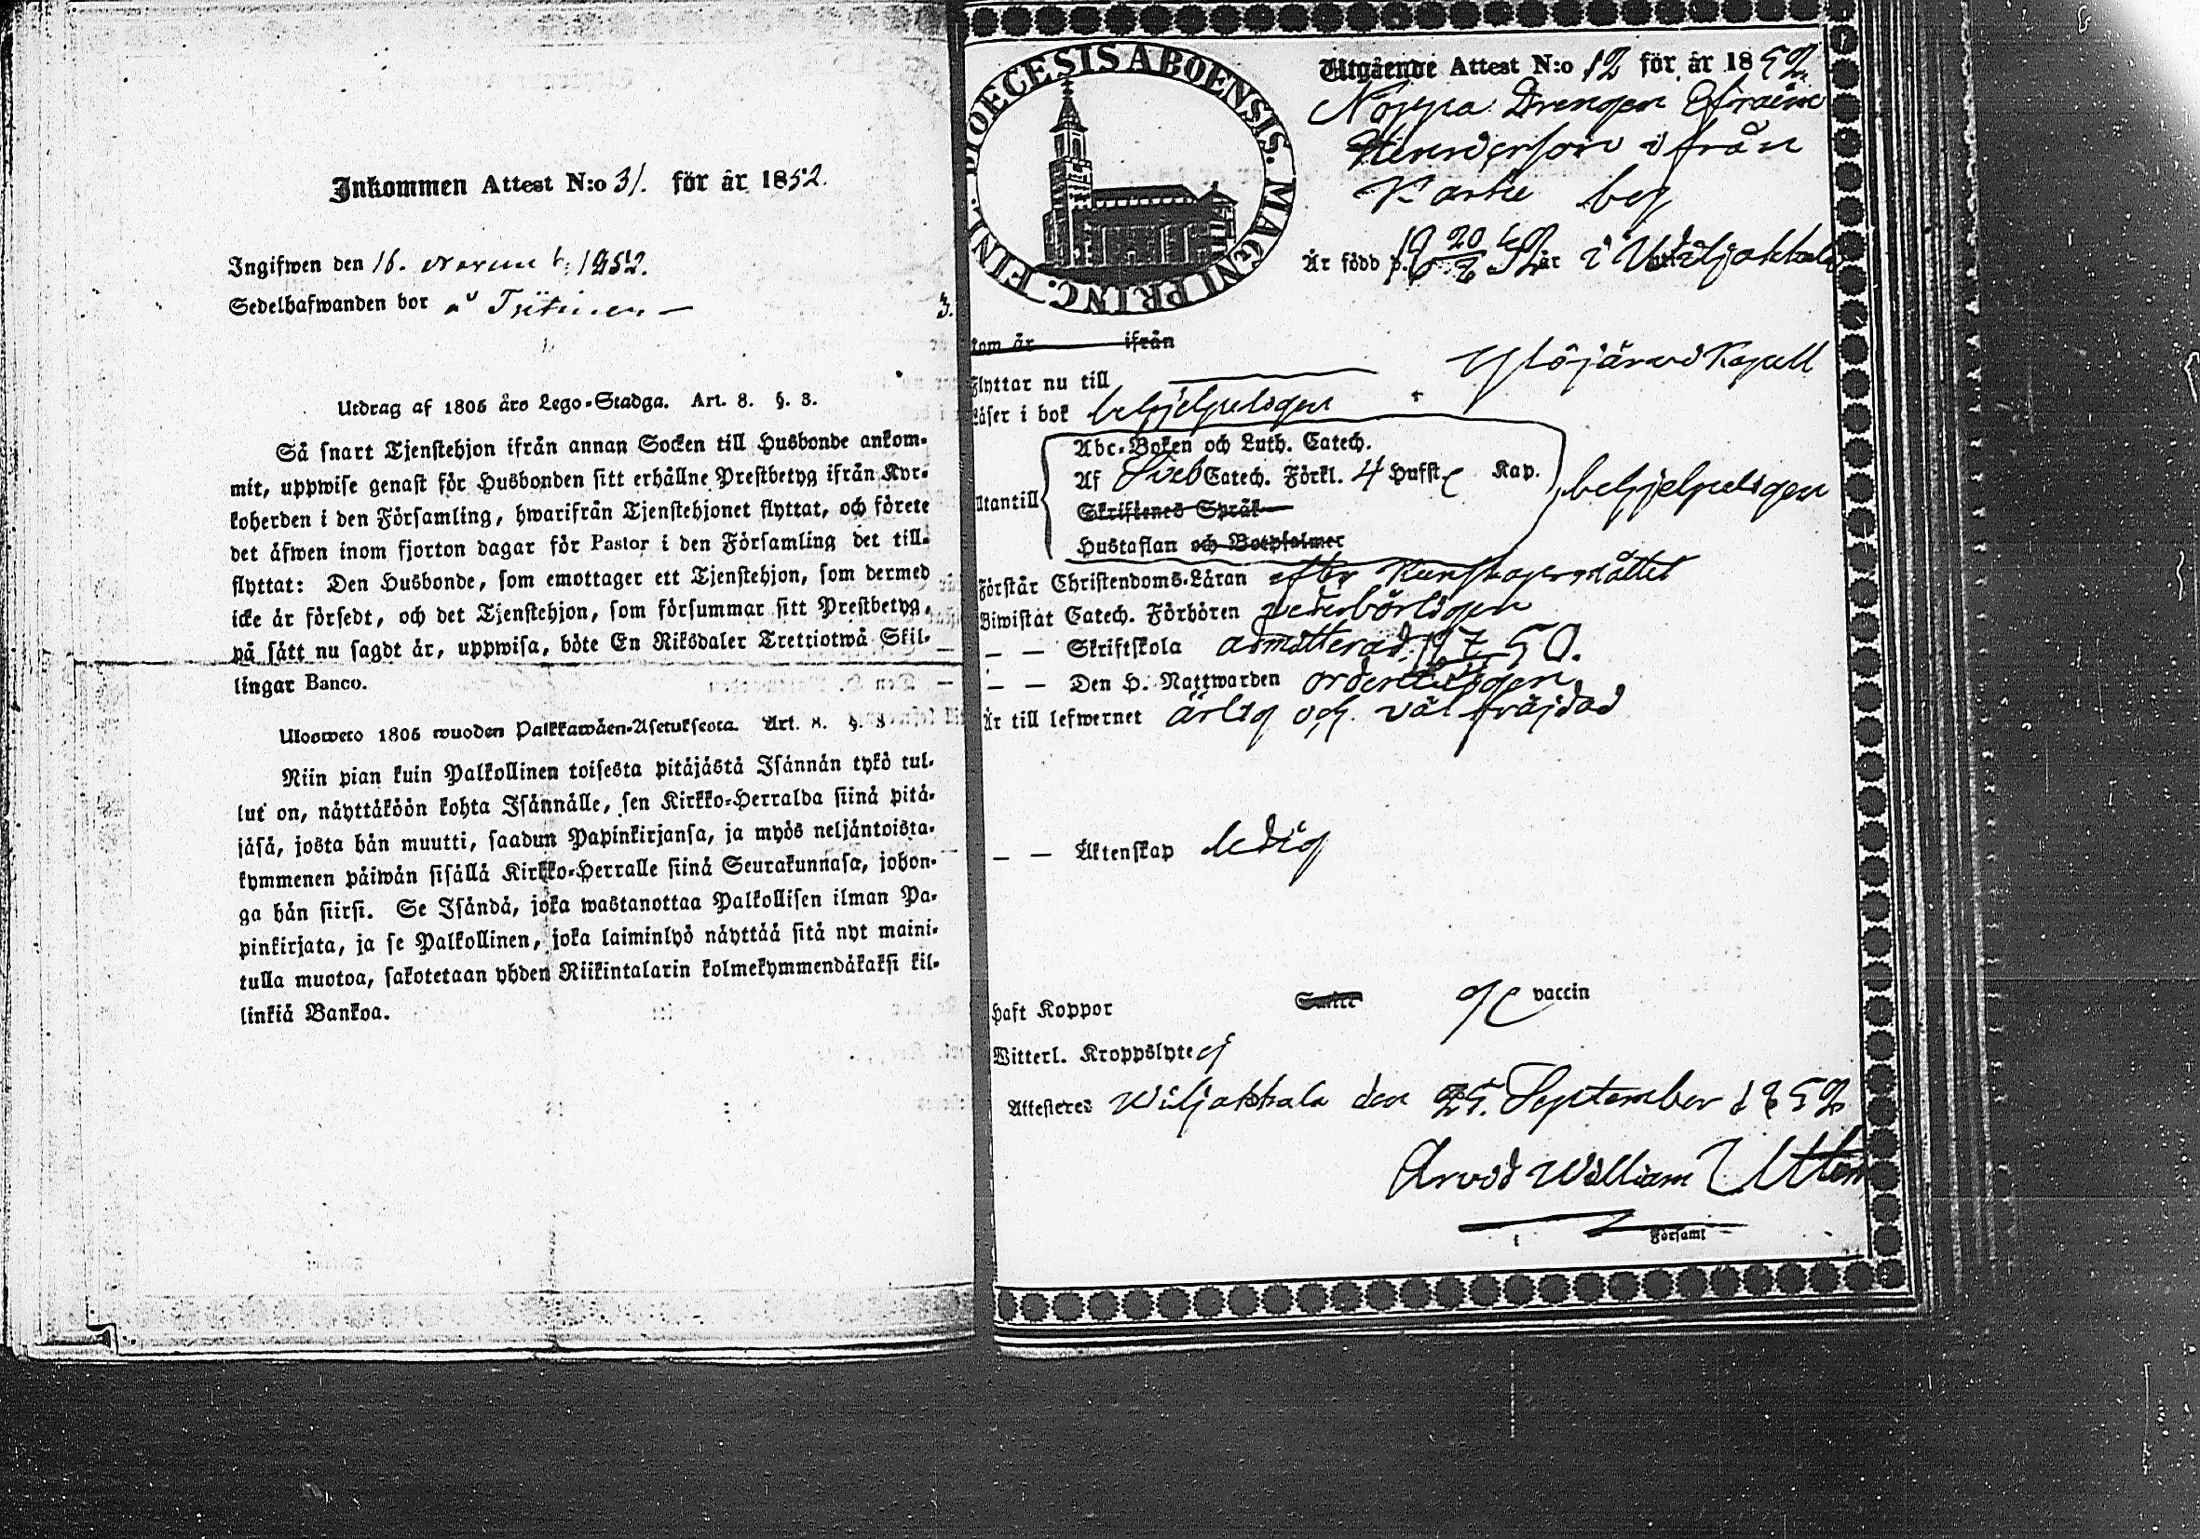 Inkommen Attest N:o 31. för år 1852.
Ingifwen den 16. Novemb; 1852.
Sedelhafwanden bor
3.
Utdrag af 1805 års Lego-Stadga. Art. 8. §. 3.
Så snart Tjenstehjon ifrån annan Socken till Husbonde ankom-
mit, uppwise genast för Husbonden sitt erhållne Prestbetyg ifrån Kyr-
koherden i den Församling, hwarifrån Tjenstehjonet flyttat, och förete
det äfwen inom fjorton dagar för Pastor i den Församling det till-
flyttat: Den Husbonde, som emottager ett Tjenstehjon, som dermed
icke är försedt, och det Tjenstehjon, som försummar sitt Prestbetyg,
på sätt nu sagdt är, uppwisa, böte En Riksdaler Trettiotwå Skil-
lingar Banco.
Ulosweto 1805 wuoden Palkkawäen-Asetuksesta. Art. 8. §. 3
Niin pian kuin Palkollinen toisesta pitäjästä Isännän tykö tul-
lut on, näyttäköön kohta Isännälle, sen Kirkko-Herralda siinä pitä-
jäsä, josta hän muutti, saadun Papinkirjansa, ja myös neljäntoista-
kymmenen päiwän sisällä Kirkko-Herralle siinä Seurakunnasa, johon-
ga hän siirsi. Se Isändä, joka wastanottaa Palkollisen ilman Pa-
pinkirjata, ja se Palkollinen, joka laiminlyö näyttää sitä nyt maini-
tulla muotoa, sakotetaan yhden Riikintalarin kolmekymmendäkaksi kil-
linkiä Bankoa.
DIOECESIS ABOENSIS. MAGNI PRINC. FINL.
Utgående Attest N:o 12 för år 1852
Drengen Efraim
Henderson ifrån
by
Är född d. 20 år i Wiljakkala
kom år ifrån
Flyttar nu till Ylöjärvi Kapell
Läser i bok behjelpeligen
Abc-Boken och Luth. Catech.
Af Sveb Catech. Förkl. 4 Hufst Kap.
Utantill behjelpeligen
Skriftenes Språk
Hustaflan och Botpsalmer
Förstår Christendoms-Läran efter Kunskapsmåttet
Biwistat Catech. Förhören vederbörligen
— — Skriftskola admitterad 50.
— — Den H. Nattwarden ordentligen
Är till lefwernet ärlig och väl fräjdad
— — Äktenskap ledig
Haft Koppor vaccin
Witterl. Kroppslyte ej
Attesteres Wiljakkala den 25. September 1852
Arvid William
i Församl